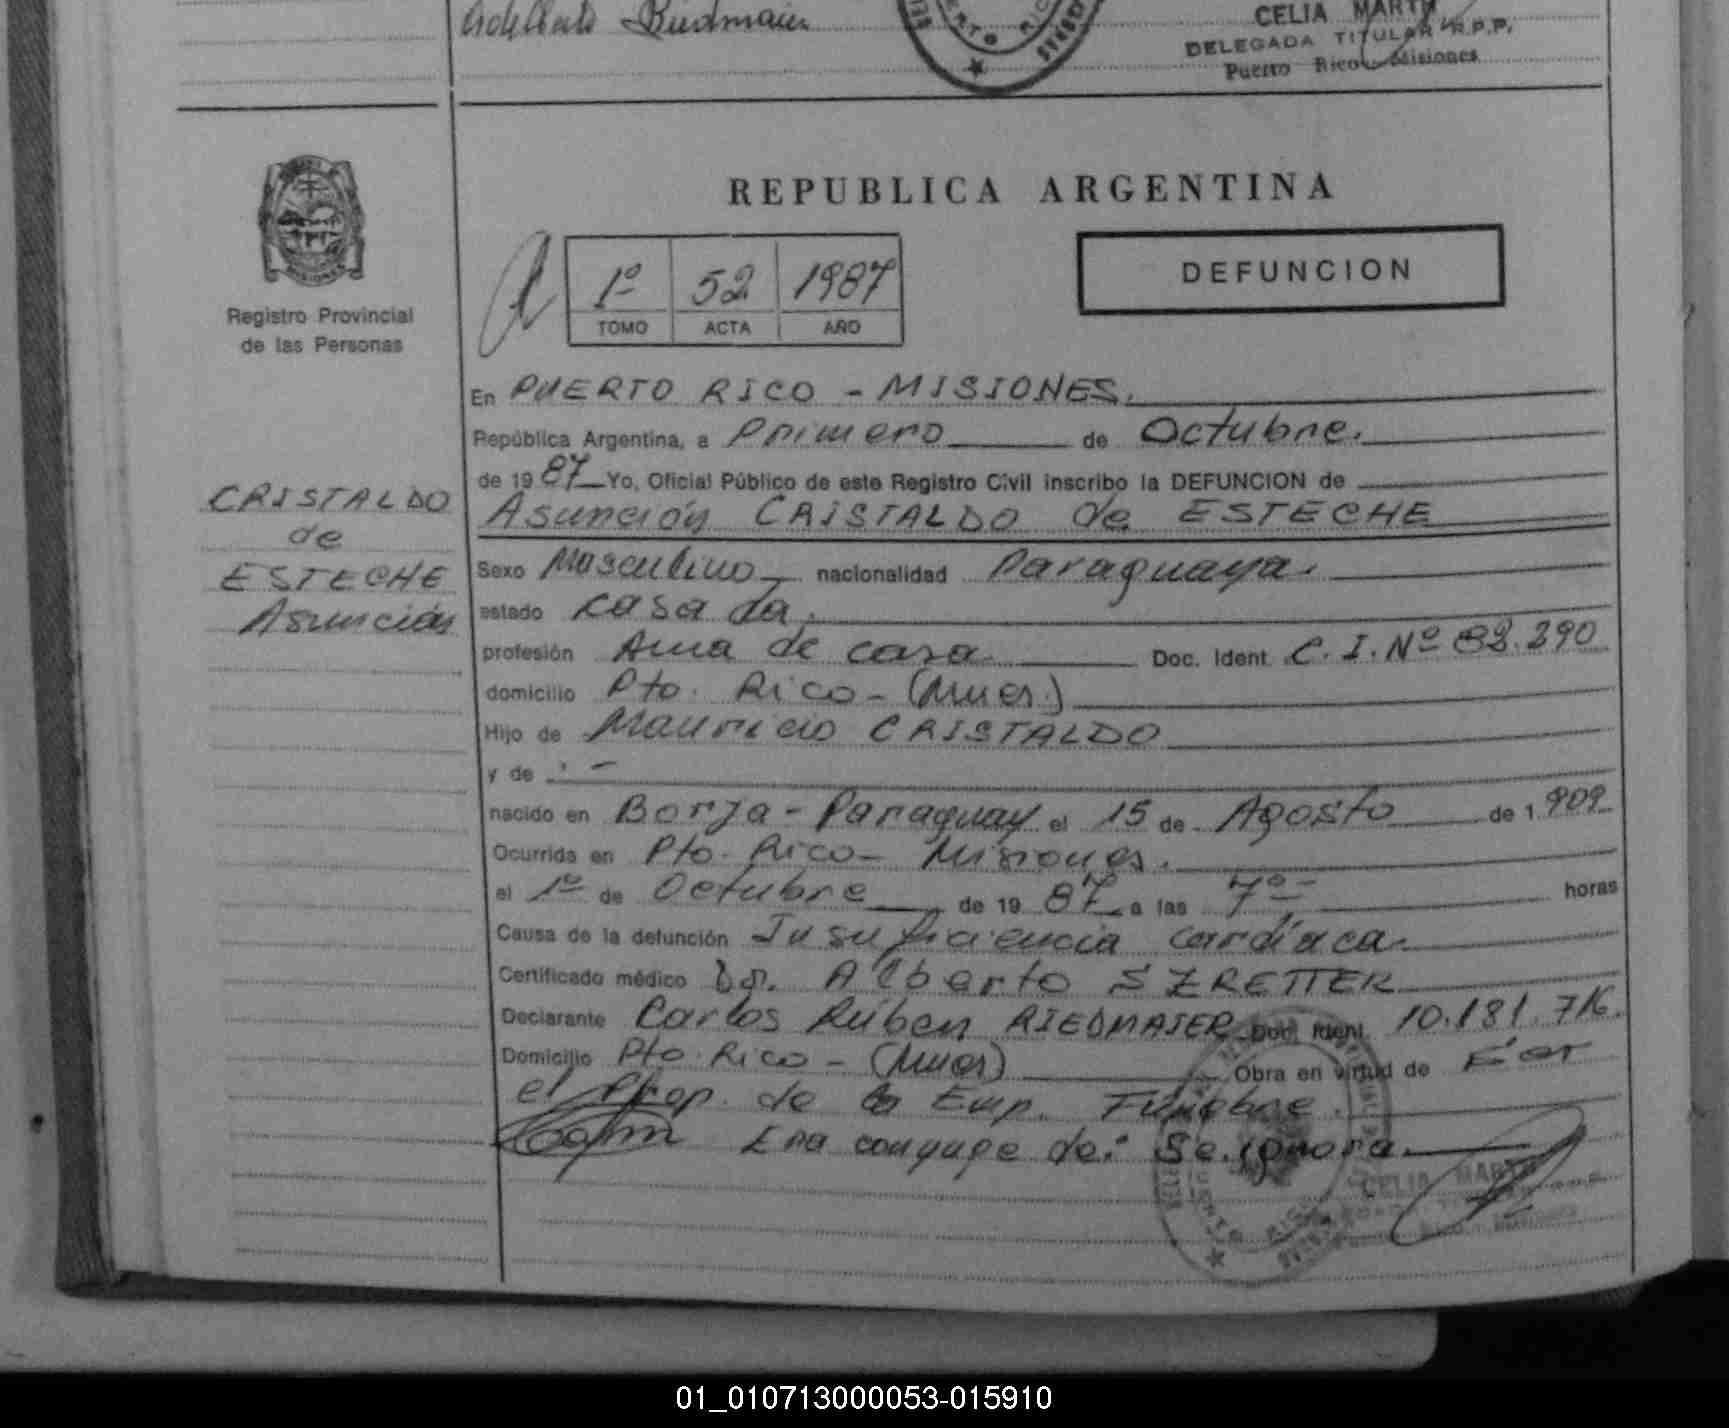 Adelberto Riedmaier
CELIA MARTA
DELEGADA TITULAR R.P.P.
Puerto Rico - Misiones
PUERTO RICO
MISIONES
REPUBLICA ARGENTINA
1º 52 1987
TOMO ACTA AÑO
DEFUNCION
Registro Provincial
de las Personas
CRISTALDO
de
ESTECHE
Asunción
En PUERTO RICO - MISIONES.
República Argentina, a Primero de Octubre.
de 1987 Yo, Oficial Público de este Registro Civil inscribo la DEFUNCION de
Asunción CRISTALDO de ESTECHE
Sexo Masculino nacionalidad Paraguaya.
estado casada.
profesión Ama de casa Doc. Ident. C.I.Nº 82.290
domicilio Pto. Rico - (Mnes.)
Hijo de Mauricio CRISTALDO
y de . -
nacido en Borja - Paraguay el 15 de Agosto de 1.909
Ocurrida en Pto. Rico - Misiones.
el 1º de Octubre de 1987 a las 7º- horas
Causa de la defunción Insuficiencia cardíaca.
Certificado médico Dr. Alberto SZRETTER
Declarante Carlos Rúben RIEDMAIER Doc. Ident. 10.181.716.
Domicilio Pto. Rico - (Mnes) Obra en virtud de ser
el Prop. de la Emp. Funebre.
Era conyuge de: Se ignora.
CELIA MARTA
PUERTO RICO
01_010713000053-015910